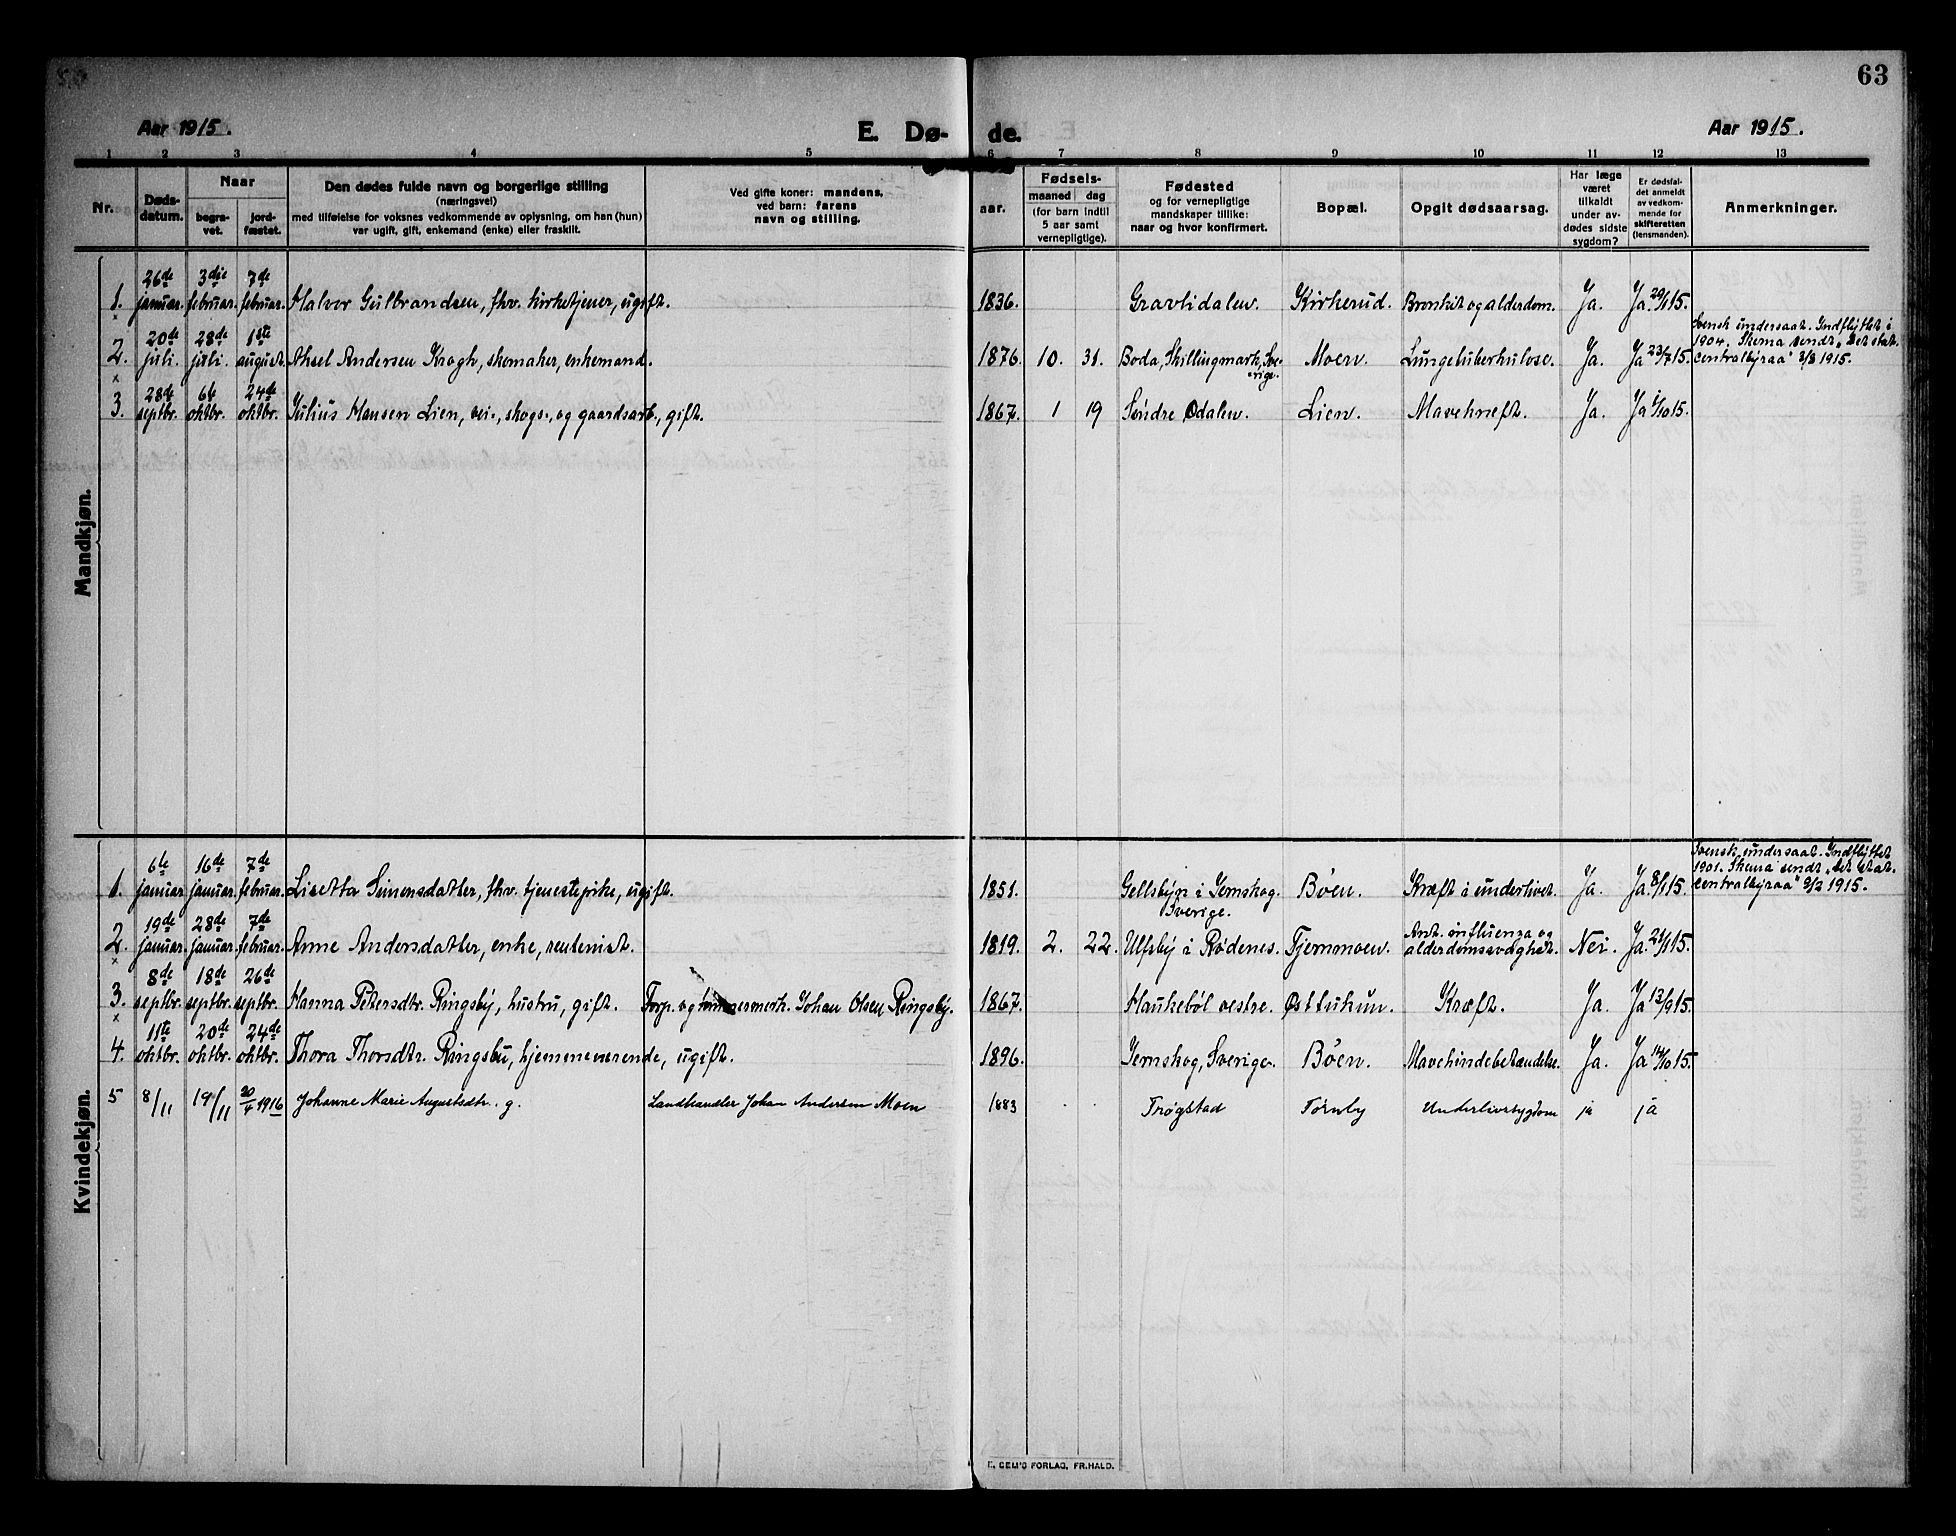 63
Aar 1915.
E. Dø- de.
Aar 1915.
1 2 3 4 5 6 7 8 9 10 11 12 13
Nr.
Døds-
datum.
Naar
begra-
vet.
jord-
fæstet.
Den dødes fulde navn og borgerlige stilling
(næringsvei)
med tilføielse for voksnes vedkommende av oplysning, om han (hun)
var ugift, gift, enkemand (enke) eller fraskilt.
Ved gifte koner: mandens,
ved barn: farens
navn og stilling.
aar.
Fødsels-
maaned dag
(for barn indtil
5 aar samt
vernepligtige).
Fødested
og for vernepligtige
mandskaper tillike:
naar og hvor konfirmert.
Bopæl.
Opgit dødsaarsag.
Har læge
været
tilkaldt
under av-
dødes sidste
sygdom?
Er dødsfal-
det anmeldt
av vedkom-
mende for
skifteretten
(lensmanden).
Anmerkninger.
Mandkjøn.
26de 3die 7de
1. januar. februar. februar. Halvor Gulbrandsen, fhv. kirketjener, ugift. 1836. Gravlidalen. Kirkerud. Bronkit og alderdom. Ja. Ja 29/1 15.
20de 28de 1ste
2. juli. juli. august. Aksel Andersen Krogh, skomaker, enkemand. 1876. 10. 31. Boda, Skillingmark, Sve-
rige. Moen. Lungetuberkulose. Ja. Ja 23/7 15.
Svensk undersaat. Indflyttet i
1904. Skema sendt „Det stat.
centralbyraa" 3/8 1915.
28de 6te 24de
3. septbr. oktbr. oktbr. Julius Hansen Lien, vei-, skogs-, og gaardsarb., gift. 1867. 1 19 Søndre Odalen. Lien. Mavekræft. Ja. Ja 1/10 15.
Kvindekjøn.
6te 16de 7de
1. januar. januar. februar. Lisetta Simensdatter, fhv. tjenestepike, ugift. 1851. Gellsbyn i Jernskog.
Sverige. Bøen. Kræft i underlivet. Ja. Ja 8/1 15.
Svensk undersaat. Indflyttet
1901. Skema sendt „Det stat.
centralbyraa" 9/2 1915.
19de 28de 7de
2. januar. januar. februar. Anne Andersdatter, enke, rentenist. 1819. 2. 22. Ulfsby i Rødenes. Tjernmoen. Ant. influenza og
alderdomssvaghet. Nei. Ja. 21/1 15.
8de 18de 26de
3. septbr. septbr. septbr. Hanna Petersdtr. Ringsby, hustru, gift. Forp. og tømmermerk. Johan Olsen Ringsby. 1867. Haukebøl vestre. Østtukun. Kræft. Ja. Ja 13/9 15.
11te 20de 24de
4. oktbr. oktbr. oktbr. Thora Thorsdtr. Ringsbu, hjemmeværende, ugift. 1896. Jernskog, Sverige. Bøen. Mavehindebetændelse. Ja. Ja 14/10 15.
5 8/11 19/11 30/4 1916 Johanne Marie Augustsdtr. g. Landhandler Johan Andersen Moen 1883 Trøgstad Tørnby Underlivssygdom ja ja
E. SEM'S FORLAG, FR.HALD.